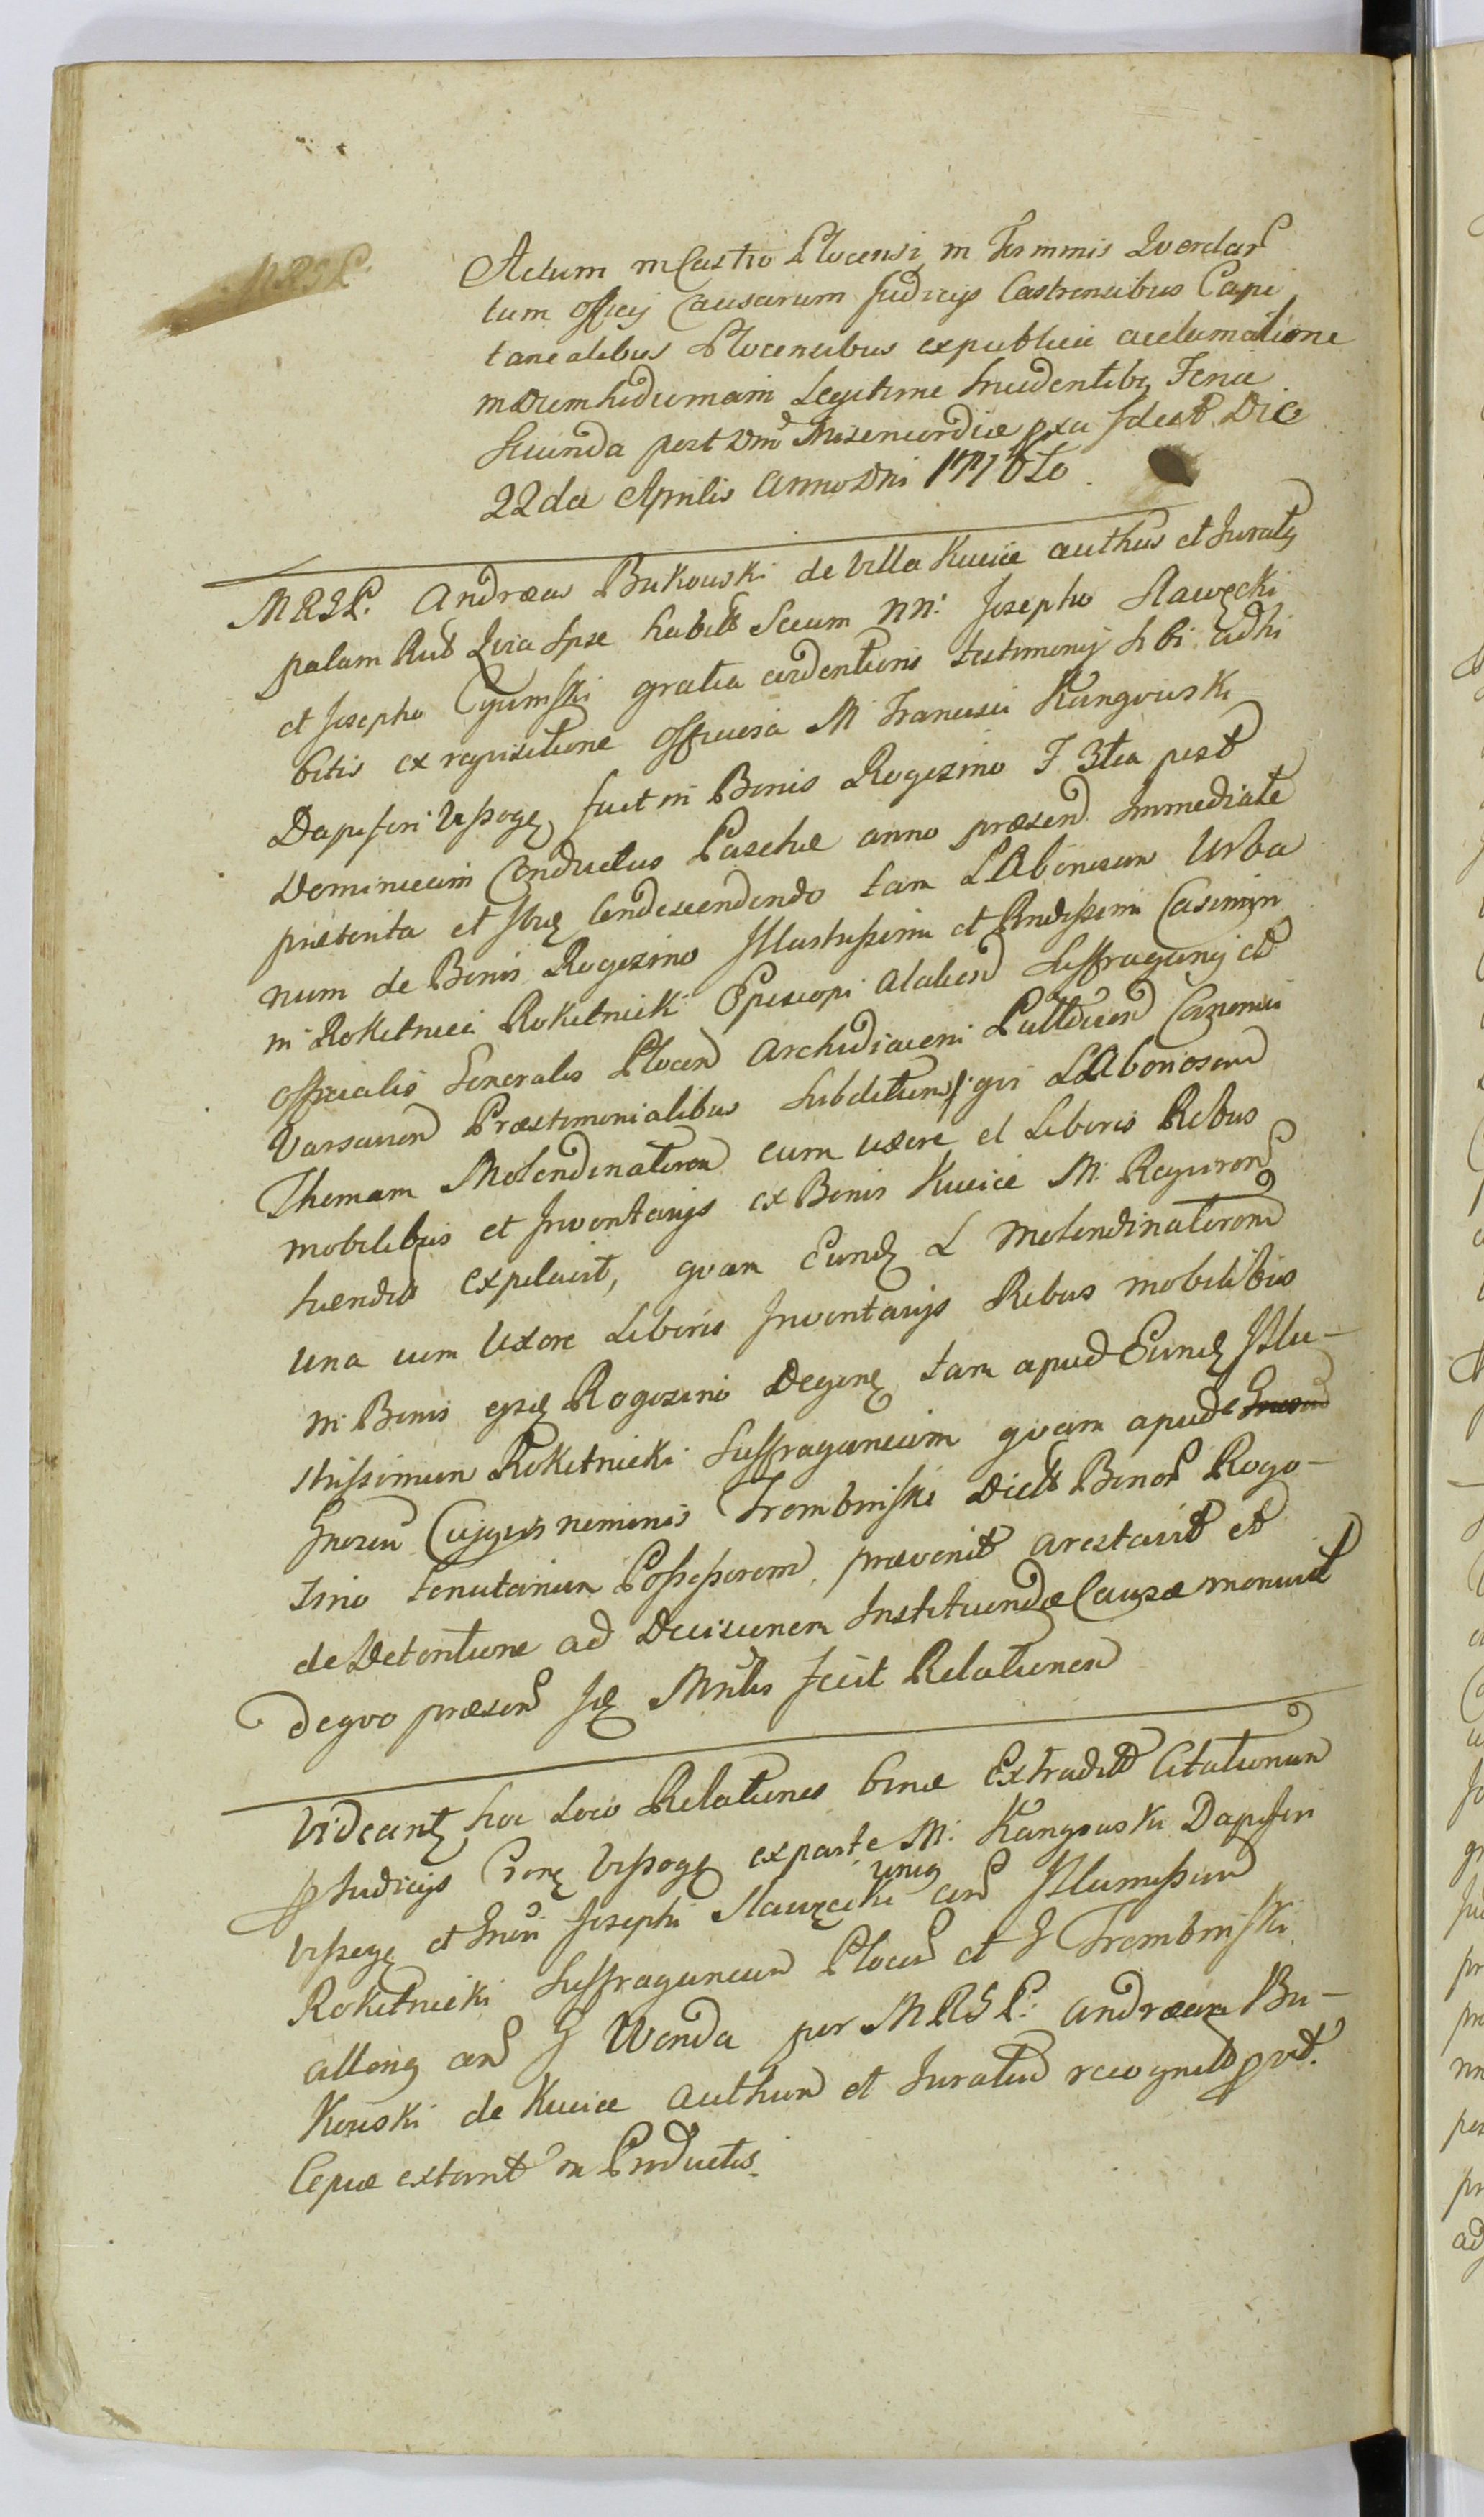 MRSP.
Actum in Castro Plocensi in Terminis Querelar
tum officij Causarum Judicijs Castrensibus Capi
tanealibus Plocensibus expublica acclamatione
in diem hodiernam Legitime Incidentibq Feria
Secunda post Dnīcā Misericordiæ pxa Idest Die
22da Aprilis Anno Dni 177
MRSP. Andreas Bukowski de Villa Kucice authus et Juratq
palam Rwt Quia Ipse habitt Secum NN: Josepho Sławęcki
et Josepho Cyumski gratia evidentioris testimonij Sibi adhi
bitis ex requisitione officiosa M Francisci Kangowski
Dapiferi Vyssogr fuit in Bonis Rogozino F 3tia post
Dominicam Conductus Paschæ anno præsend Immediate
præterita et Ibiq Condescendendo tam LAboriosum Urba
num de Bonis Rogozino Illustrissimi et Rndissimi Casimiri
in Rokitnica Rokitnicki Episcopi Alalien Suffraganij et
officialis Generalis Plocen Archidiaconi Pultovien Canonici
Varsavien Præstimonialibus Subditum, qvi LAboriosum
Thomam Molendinatorem cum uxore et Liberis Rebus
mobilibus et Inventarijs ex Bonis Kucice M. Reqviren
hærendit expilavit, qvam Eundq L Molendinatorem
una cum Uxore Liberis Inventarijs Rebus mobilibus
in Bonis ejsdq Rogozino Degenq tam apud Eundq Illu-
strissimum Rokitnicki Suffraganeum qvam apud
Gnosum Cujqvis nominis Trembinski Dictt Bonor Rogo-
zino Tenutarium Possessorem, prævenit arestavit et
de Detentione ad Decisionem Instituendæ Causæ monuit
deqvo præsen Iq Mnlis fecit Relationem
Videantq hoc Loco Relationes binæ Extraditt Citationum
p Judicijs Vyssogr exparte M. Kangowski Dapiferi
Vyssogr et Gnosi Josephi Sławęcki unius con Illumissum
Rokitnicki Suffraganeum Plocen et G Trembinski
alterig con G Wenda per MRSP. Andream Bu-
kowski de Kucice Authum et Juratum recognitt prt.
Copiæ extant in Productis.